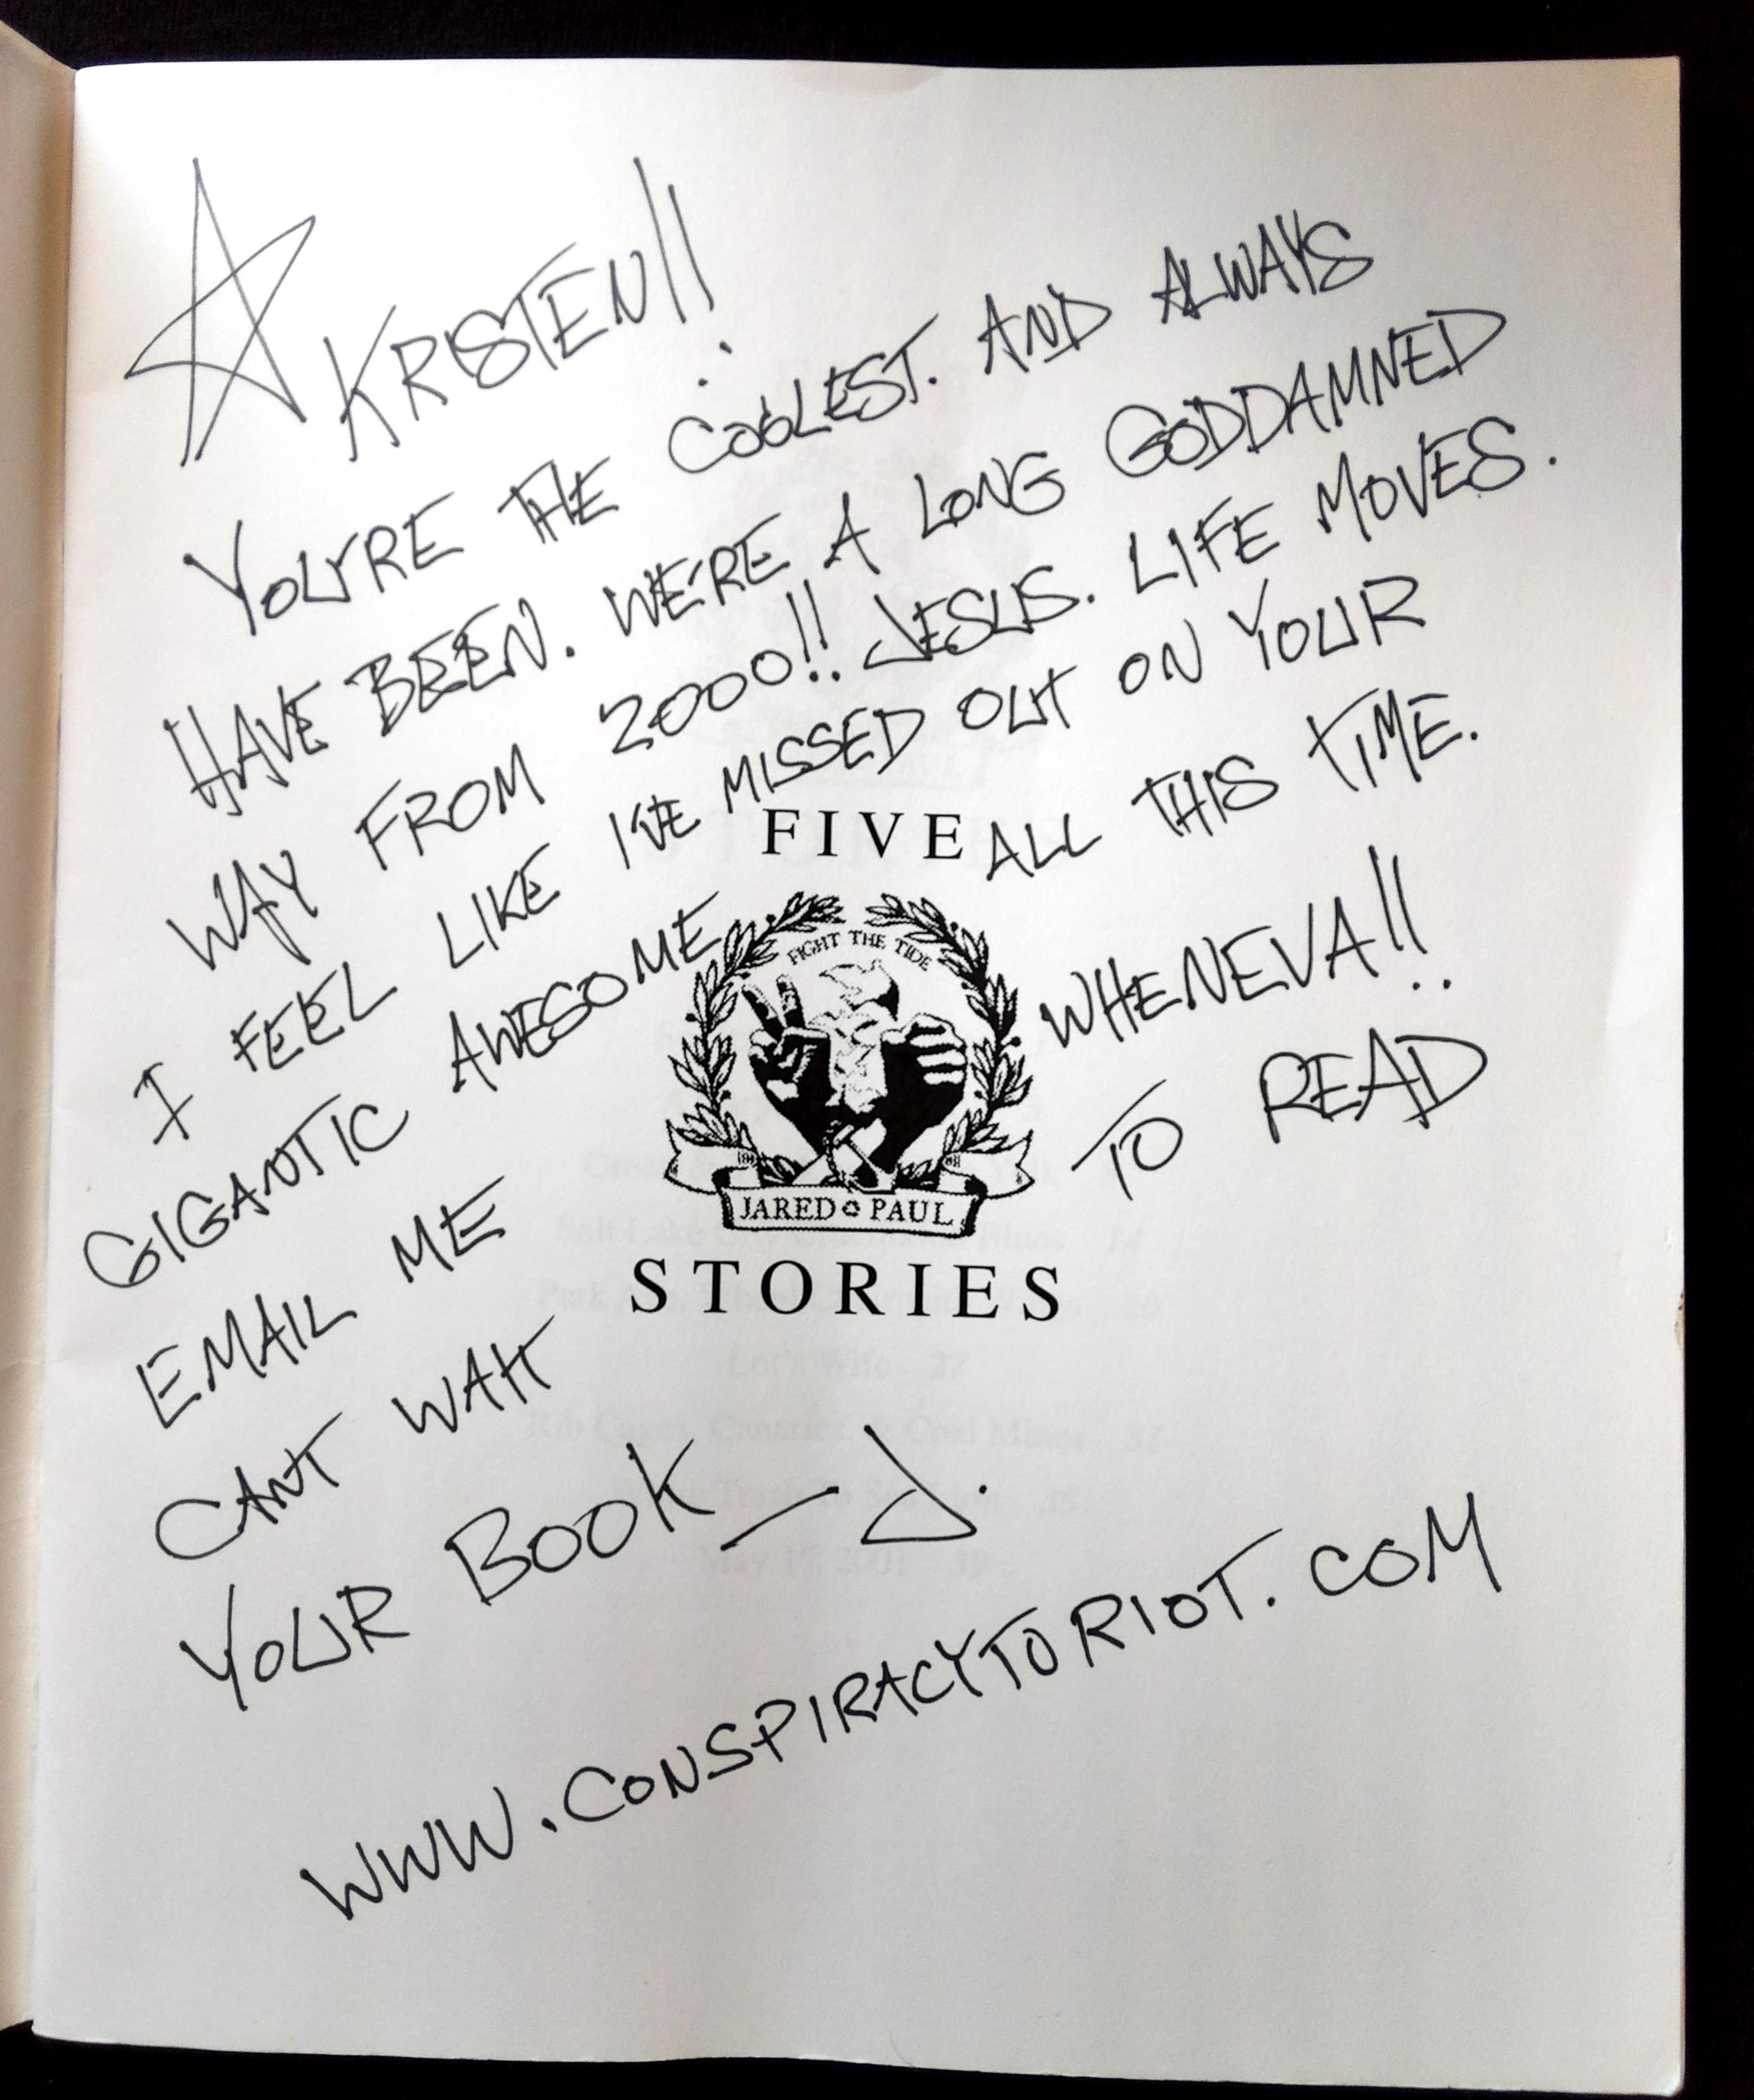 KRISTEN!!
YOU'RE THE COOLEST. AND ALWAYS
HAVE BEEN. WE'RE A LONG GODDAMNED
WAY FROM 2000!! JESUS. LIFE MOVES.
I FEEL LIKE I'VE MISSED OUT ON YOUR
GIGANTIC AWESOME ALL THIS TIME.
EMAIL ME WHENEVA!!
CANT WAIT TO READ
YOUR BOOK — J.
WWW.CONSPIRACYTORIOT.COM
FIVE
FIGHT THE TIDE
JARED PAUL
STORIES
Lot's Wife 27
May 15, 2001 39